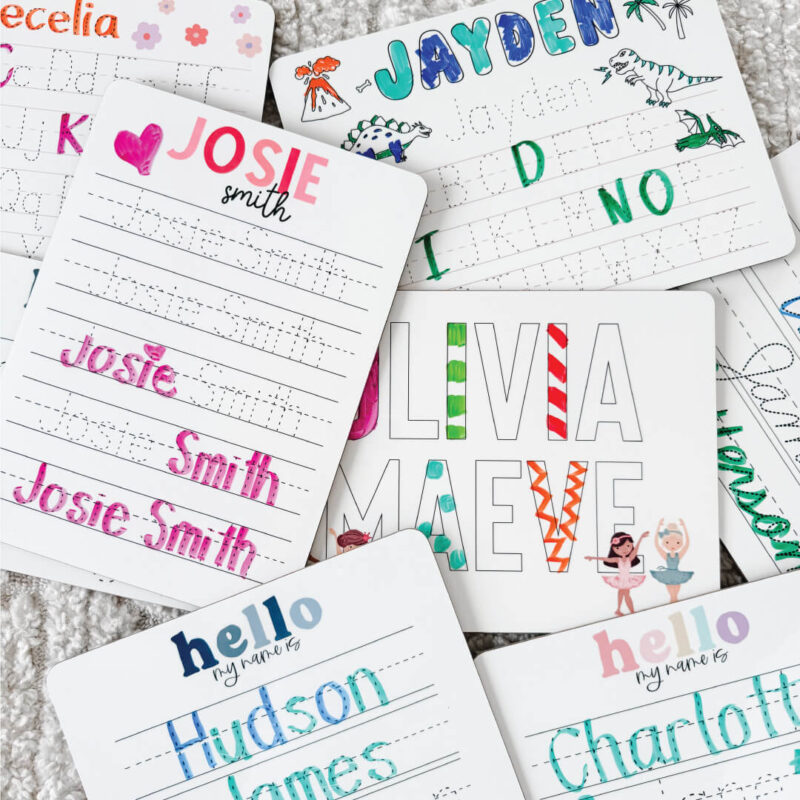 ecelia
K
JOSIE
smith
Josie Smith
Josie Smith
Josie Smith
Josie Smith
Josie Smith
JAYDEN
Jayden
D
I J K L M N O
OLIVIA
MAEVE
hello
my name is
Hudson
James
hello
my name is
Charlott